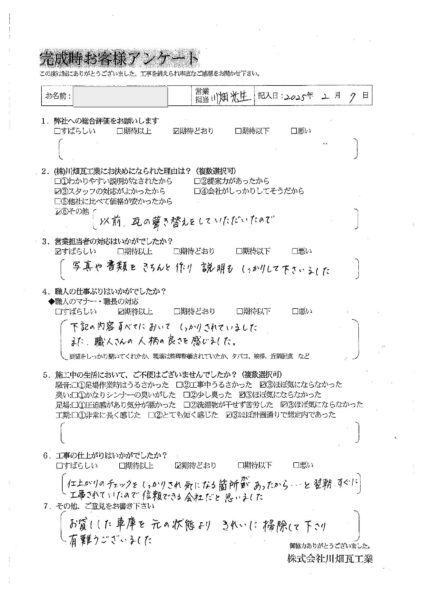 完成時お客様アンケート
この度は誠にありがとうございました。工事を終えられ率直なご感想をお聞かせ下さい。
お名前: 営業担当 川畑 記入日: 2025年 2月 9日
1. 弊社への総合評価をお願いします
□すばらしい □期待以上 ☑期待どおり □期待以下 □悪い
2. (株)川畑瓦工業にお決めになられた理由は？（複数選択可）
□①わかりやすい説明がなされたから □②提案力があったから
☑③スタッフの対応がよかったから □④会社がしっかりしてそうだから
□⑤他社に比べて価格が安かったから
☑⑥その他
以前、瓦の葺き替えをしていただいたので
3. 営業担当者の対応はいかがでしたか？
☑すばらしい □期待以上 □期待どおり □期待以下 □悪い
写真や書類をきちんと作り説明もしっかりして下さいました
4. 職人の仕事ぶりはいかがでしたか？
◆職人のマナー・職長の対応
□すばらしい ☑期待以上 □期待どおり □期待以下 □悪い
下記の内容すべてにおいてしっかりされていました
また、職人さんの人柄の良さを感じました。
5. 施工中の生活において、ご不便はございませんでしたか？（複数選択可）
騒音:□①足場作業時はうるさかった □②工事中うるさかった ☑③ほぼ気にならなかった
臭い:□①かなりシンナーの臭いがした □②少し臭った ☑③ほぼ気にならなかった
足場:□①圧迫感があり気分が悪かった □②洗濯物が干せず苦労した ☑③ほぼ気にならなかった
工期:□①非常に長く感じた □②とても短く感じた ☑③ほぼ計画通りで想定内であった
6. 工事の仕上がりはいかがでしたか？
□すばらしい □期待以上 ☑期待どおり □期待以下 □悪い
仕上がりのチェックをしっかりされ気になる箇所があったから…と翌朝すぐに
工事されていたので信頼できる会社だと思いました
7. その他、ご意見をお書き下さい
お貸しした車庫を元の状態よりきれいに掃除して下さり
有難うございました
御協力ありがとうございました。
株式会社川畑瓦工業